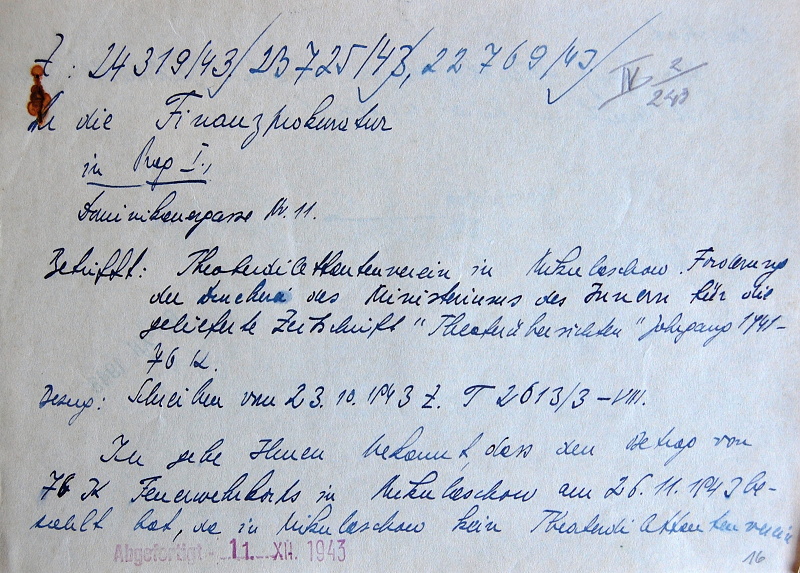 Z: 24319/43, 23725/43, 22769/43
IV 2/243
An die Finanzprokuratur
in Prag I.,
Dominikanergasse Nr. 11.
Betrifft: Theaterdilettantenverein in Mikulaschow. Forderung
der Druckerei des Ministeriums des Innern für die
gelieferte Zeitschrift "Theaterübersichten" Jahrgang 1941-
76 K.
Bezug: Schreiben vom 23. 10. 1943 Z. T 2613/3-VIII.
Ich gebe Ihnen bekannt, dass den Betrag von
76 K Feuerwehrkorps in Mikulaschow am 26.11.1943 be-
zahlt hat, da in Mikulaschow kein Theaterdilettantenverein
Abgefertigt - 11. XII. 1943
16